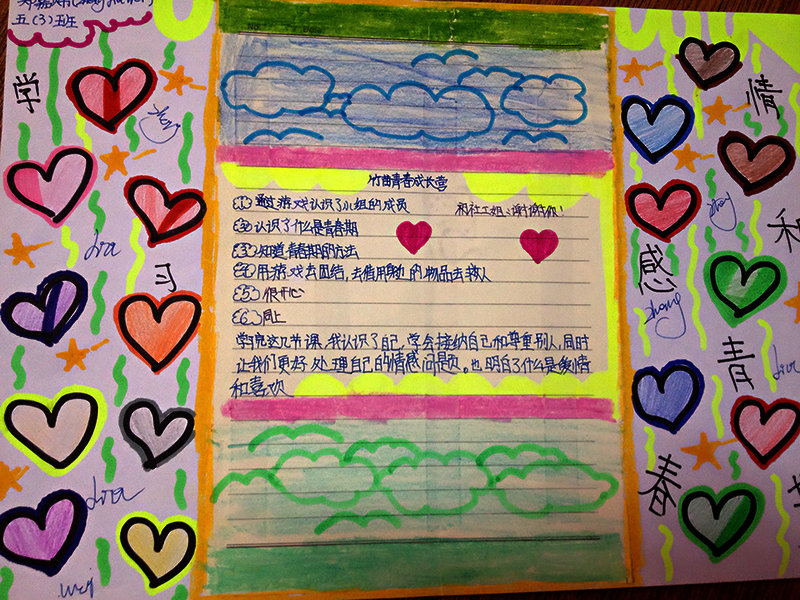 五(3)班
学
习
竹苗青春成长营
(1)通过游戏认识了小组的成员
和社工姐:谢谢你!
(2)认识了什么是青春期
(3)知道青春期的方法
(4)用游戏去团结,去借用身边的物品去救人
(5)很开心
(6)同上
学完这几节课,我认识了自己,学会接纳自己和尊重别人,同时
让我们更好处理自己的情感问题。也明白了什么是爱情
和喜欢
情
和
感
青
春
zhang